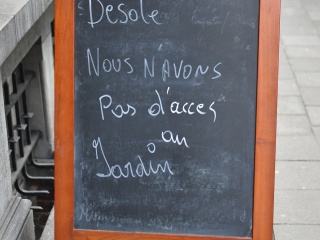 Désolé
Nous N'avons
Pas d'accès
au
Jardin